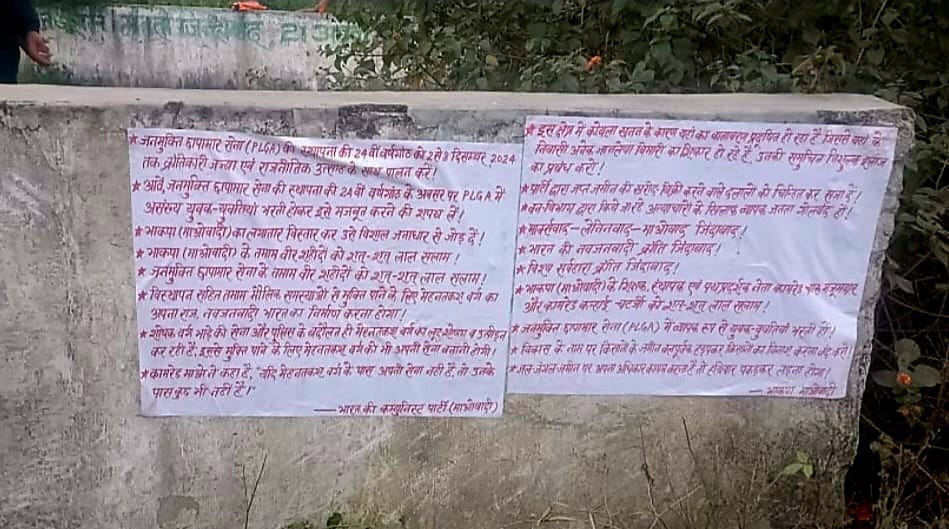 ★ जनमुक्ति छापामार सेना (PLGA) की स्थापना की 24वीं वर्षगांठ को 2 से 8 दिसम्बर 2024
तक क्रांतिकारी जज्बा एवं राजनीतिक उत्साह के साथ पालन करें!
★ आवें, जनमुक्ति छापामार सेना की स्थापना की 24वीं वर्षगांठ के अवसर पर PLGA में
असंख्य युवक-युवतियां भर्ती होकर इसे मजबूत करने की शपथ लें!
★ भाकपा (माओवादी) का लगातार विस्तार कर उसे विशाल जनाधार से जोड़ दें!
★ भाकपा (माओवादी) के तमाम वीर शहीदों को शत्-शत् लाल सलाम!
★ जनमुक्ति छापामार सेना के तमाम वीर शहीदों को शत्-शत् लाल सलाम!
★ विस्थापन सहित तमाम मौलिक समस्याओं से मुक्ति पाने के लिए मेहनतकश वर्ग का
अपना राज, नवजनवादी भारत का निर्माण करना होगा!
★ शोषक वर्ग भाड़े की सेना और पुलिस के बदौलत ही मेहनतकश वर्ग का लूट, शोषण व उत्पीड़न
कर रही है, इससे मुक्ति पाने के लिए मेहनतकश वर्ग को भी अपनी सेना बनानी होगी!
★ कामरेड माओ ने कहा है, "यदि मेहनतकश वर्ग के पास अपनी सेना नहीं है, तो उनके
पास कुछ भी नहीं है।"
— भारत की कम्युनिस्ट पार्टी (माओवादी)
★ इस क्षेत्र में कोयला खनन के कारण यहां का वातावरण प्रदूषित हो रहा है जिससे यहां के
निवासी अनेक जानलेवा बिमारी का शिकार हो रहे हैं, उनकी समुचित निशुल्क इलाज
का प्रबंध करो!
★ पार्टी द्वारा जप्त जमीन की खरीद-बिक्री करने वाले दलालों को चिन्हित कर सजा दें!
★ वन-विभाग द्वारा किये जा रहे अत्याचारों के खिलाफ व्यापक जनता गोलबंद हों!
★ मार्क्सवाद-लेनिनवाद-माओवाद जिंदाबाद!
★ भारत की नवजनवादी क्रांति जिंदाबाद!
★ विश्व सर्वहारा क्रांति जिंदाबाद!
★ भाकपा (माओवादी) के शिक्षक, संस्थापक एवं पथप्रदर्शक नेता कामरेड चारू मजूमदार
और कामरेड कन्हाई चटर्जी को शत्-शत् लाल सलाम!
★ जनमुक्ति छापामार सेना (PLGA) में व्यापक रूप से युवक-युवतियां भर्ती हों!
★ विकास के नाम पर किसानों के जमीन बलपूर्वक हड़पकर किसानों का विनाश करना बंद करो!
★ जल-जंगल-जमीन पर अपना अधिकार कायम करना है तो हथियार पकड़कर लड़ना होगा!
— भाकपा माओवादी